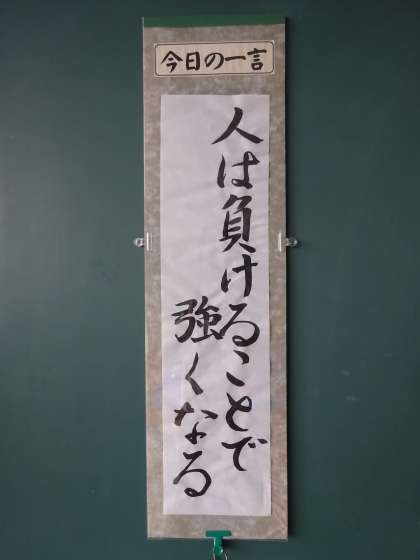 今日の一言
人は負けることで
強くなる